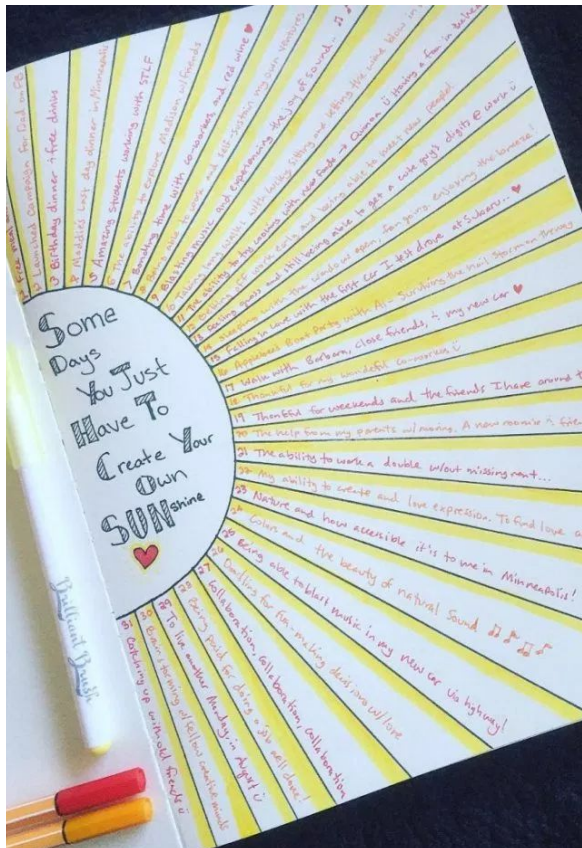 Some
Days
You Just
Have To
Create Your
Own
SUNshine
1 Free meal
2 Launched Campaign for Food on
3 Birthday dinner + free drinks
4 Maddies last day dinner in Minneapolis
5 Amazing students working with STLF
6 The ability to explore Madison w/friends
7 Bonding time with co-workers, and red wine
8 Being able to work and self-sustain my own ventures
9 Blasting music and experiencing the joy of sound
10 Taking long walks with Lucky, sitting and letting the wind blow in
11 The ability to try cooking with new foods → Quinoa Having a fan in
12 Getting off work early and being able to meet new people!
13 Feeling gross and still being able to get a cute guy's digits @ work
14 Sleeping with the window open, fan going, enjoying the breeze!
15 Falling in love with the first car I test drove at Subaru..
16 Applebees Boat Party with Ali - Surviving the Hail Storm on
17 Walk with Barbara, close friends, my new car
18 Thankful for my wonderful co-workers
19 Thankful for weekends and the friends I have around
20 The help from my parents w/moving. A new roomie
21 The ability to work a double w/out missing rent...
22 My ability to create and love expression. To find love
23 Nature and how accessible it is to me in Minneapolis!
24 Colors and the beauty of natural sound
25 Being able to blast music in my new car via highway!
26 Doodling for fun - making decisions w/love
27 Collaboration, collaboration, collaboration
28 Being paid for doing a job well done!
29 To live another Monday in August
30 Brainstorming w/fellow creative minds
31 Catching up with old friends
Brilliant Brush